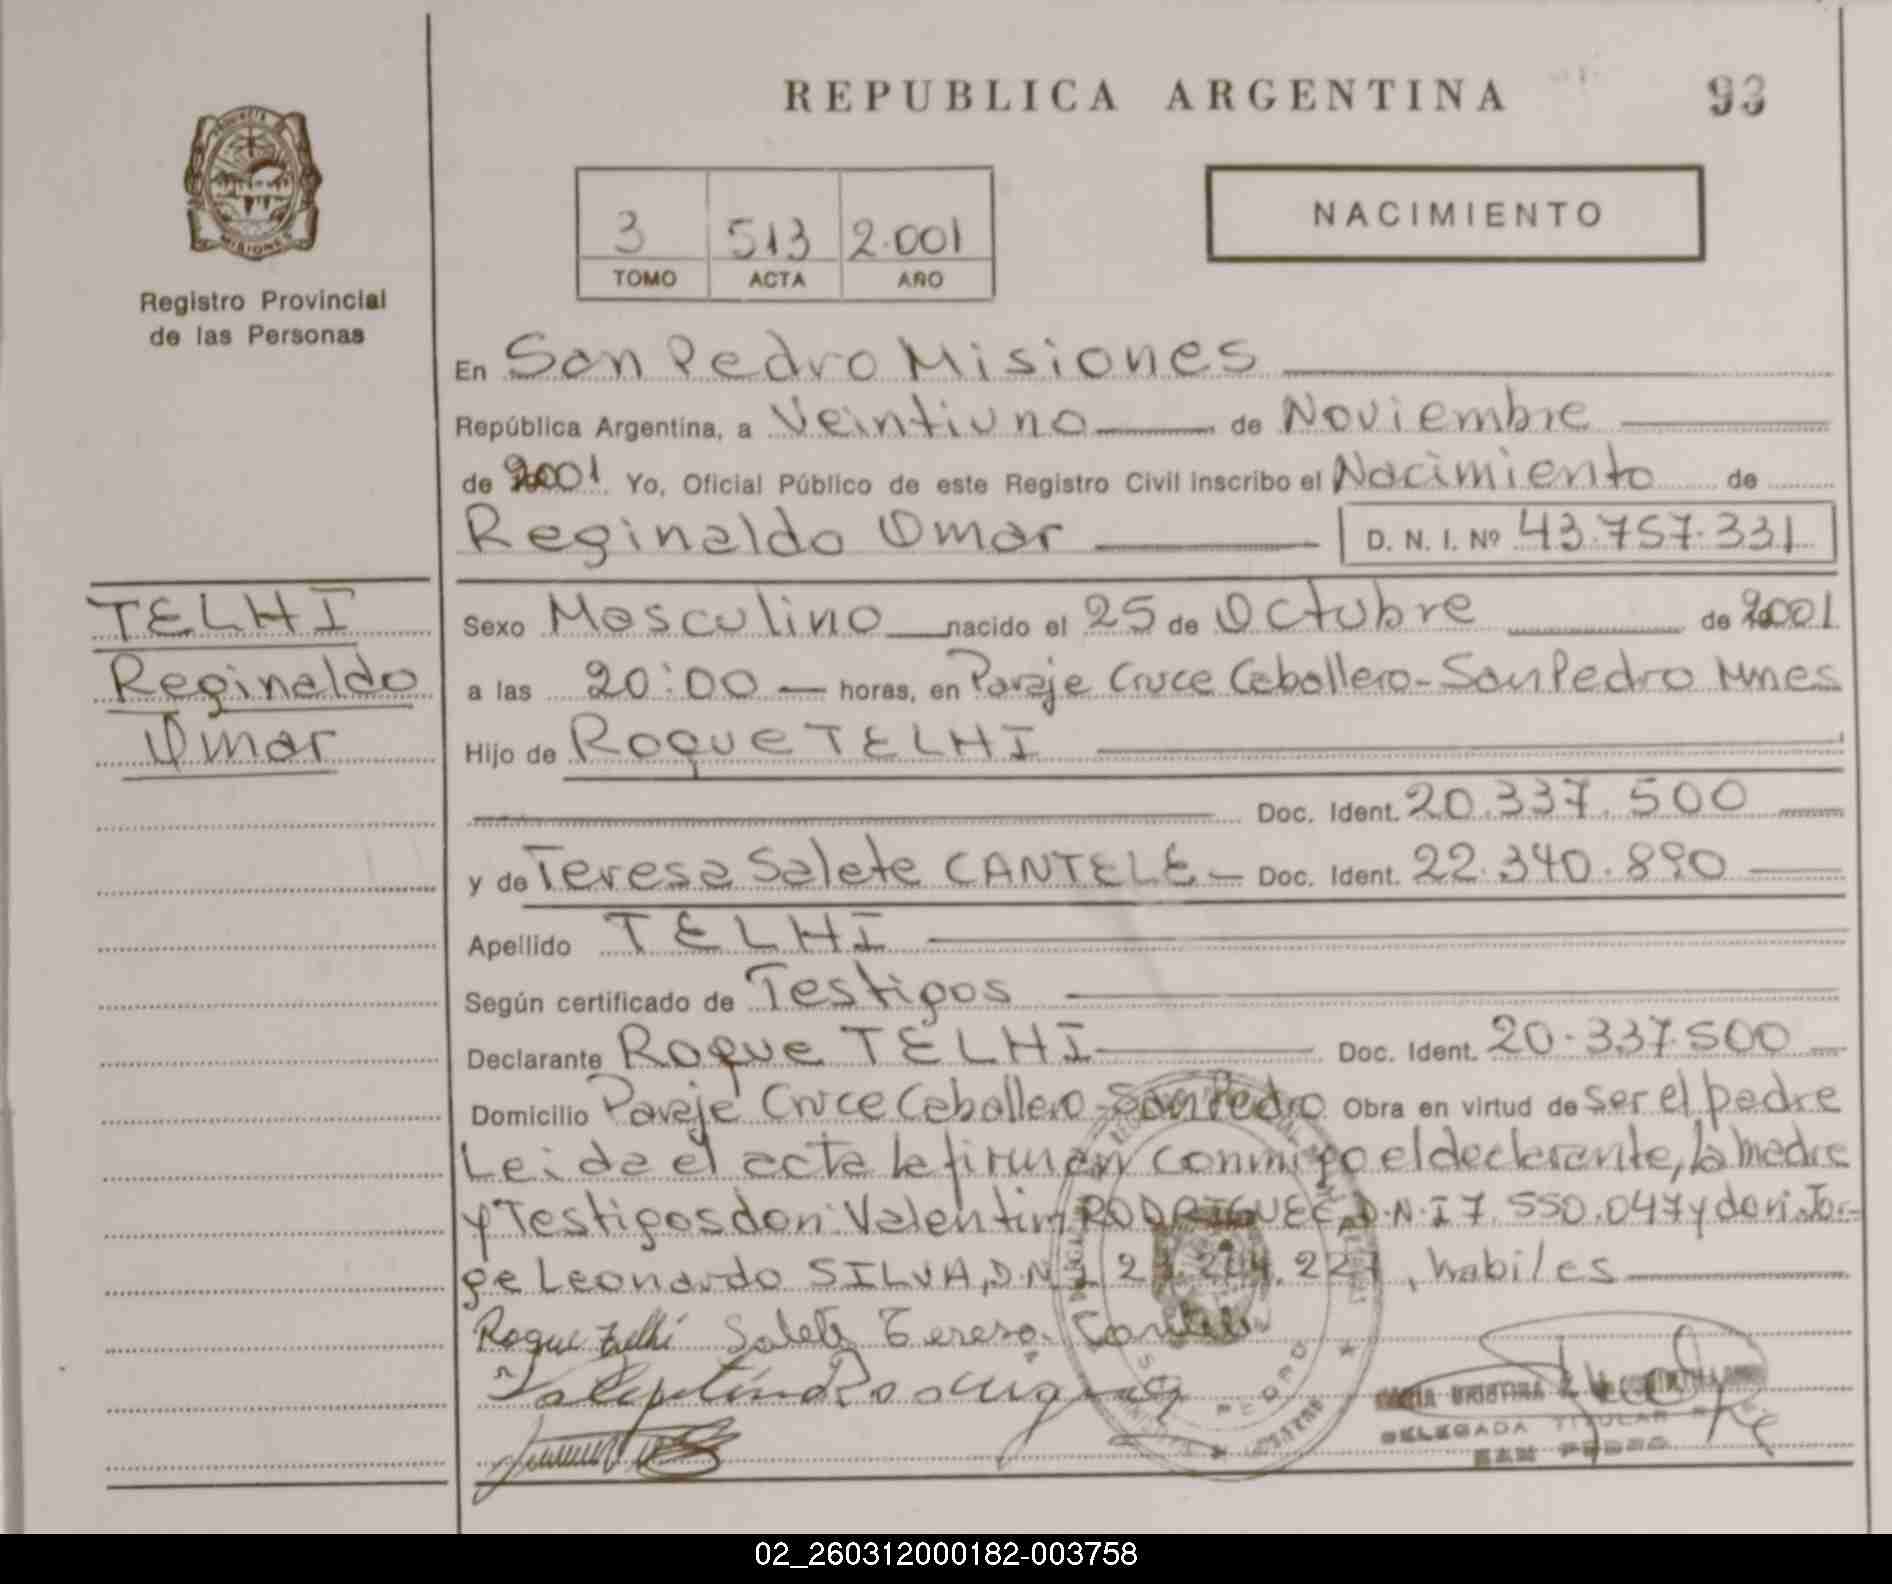 REPUBLICA ARGENTINA
93
PROVINCIA
MISIONES
Registro Provincial
de las Personas
3 513 2.001
TOMO ACTA AÑO
NACIMIENTO
En San Pedro Misiones
República Argentina, a Veintiuno de Noviembre
de 2001 Yo, Oficial Público de este Registro Civil inscribo el Nacimiento de
Reginaldo Omar D. N. I. Nº 43.757.331
TELHI
Reginaldo
Omar
Sexo Masculino nacido el 25 de Octubre de 2001
a las 20:00 horas, en Paraje Cruce Caballero-San Pedro Mnes
Hijo de Roque TELHI
Doc. Ident. 20.337.500
y de Teresa Salete CANTELE Doc. Ident. 22.340.890
Apellido TELHI
Según certificado de Testigos
Declarante Roque TELHI Doc. Ident. 20.337.500
Domicilio Paraje Cruce Caballero-San Pedro Obra en virtud de ser el padre
Leida el acta la firman conmigo el declarante, la madre
y Testigos don: Valentin D.N.I 7.550.047 y don: Jor-
ge Leonardo SILVA, D.N.I , habiles
Roque Telhi Salete Teresa Cantele
Valentin Rodriguez
DELEGADA TITULAR
SAN PEDRO
02_260312000182-003758